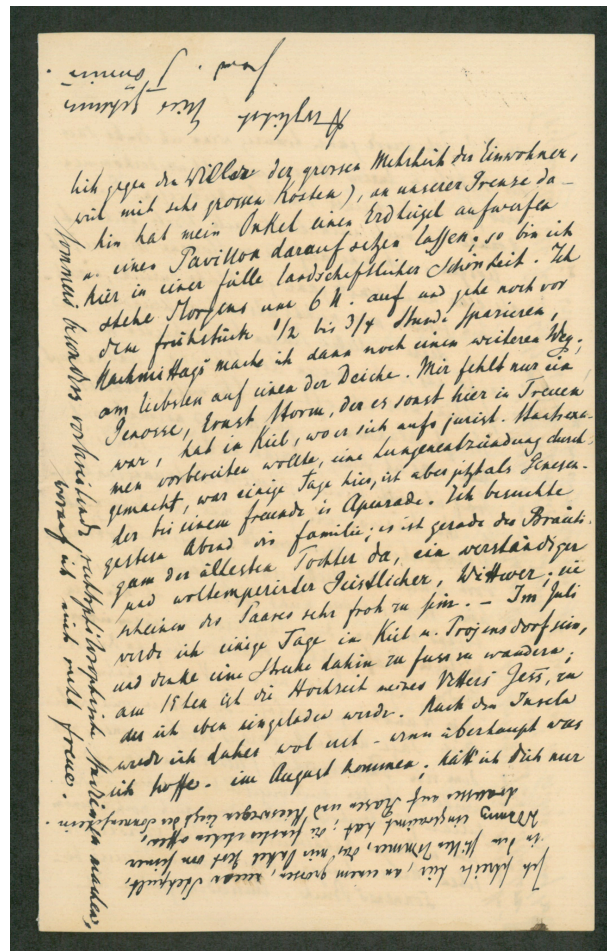 lich gegen den Willen der grossen Mehrheit der Einwohner,
weil mit sehr grossen Kosten), an unserer Grenze da-
hin hat mein Onkel einen Erdhügel aufwerfen
u. einen Pavillon darauf setzen lassen; so bin ich
hier in einer fülle landschaftlicher Schönheit. Ich
stehe Morgens um 6 U. auf und gehe noch vor
dem frühstück 1/2 bis 3/4 Stunde spazieren,
Nachmittags mache ich dann noch einen weiteren Weg,
am liebsten auf einen der Deiche. Mir fehlt nur ein
Genosse, Ernst Storm, der es sonst hier in Treuen
war, hat in Kiel, wo er sich aufs jurist. Staatsexa-
men vorbereiten wollte, eine Lungenentzündung durch-
gemacht, war einige Tage hier, ist aber jetzt als Genesen-
der bei einem freunde in Apenrade. Ich besuchte
gestern Abend die familie; es ist gerade der Bräuti-
gam der ältesten Tochter da, ein verständiger
und woltemperirter Geistlicher, Wittwer; sie
scheinen des Paares sehr froh zu sein. – Im Juli
werde ich einige Tage in Kiel u. Projensdorf sein,
und denke eine Strecke dahin zu fuss zu wandern;
am 15ten ist die Hochzeit meines Vetters Jess, zu
der ich eben eingeladen werde. Nach den Inseln
werde ich daher wol erst - wenn überhaupt was
ich hoffe - im August kommen; hätt' ich Dich nur
Ich schreibe hier, an einem grossen, neuen Stehpult,
in dem stillen Zimmer, das mir Onkel hier am
eingeräumt hat; die fenster stehen offen,
draussen auf Rasen und Kieswegen liegt der Sonnenschein.
Sommers besonders rechtsphilosophische Studien machen,
worauf ich mich recht freue.
Herzlichst Dein